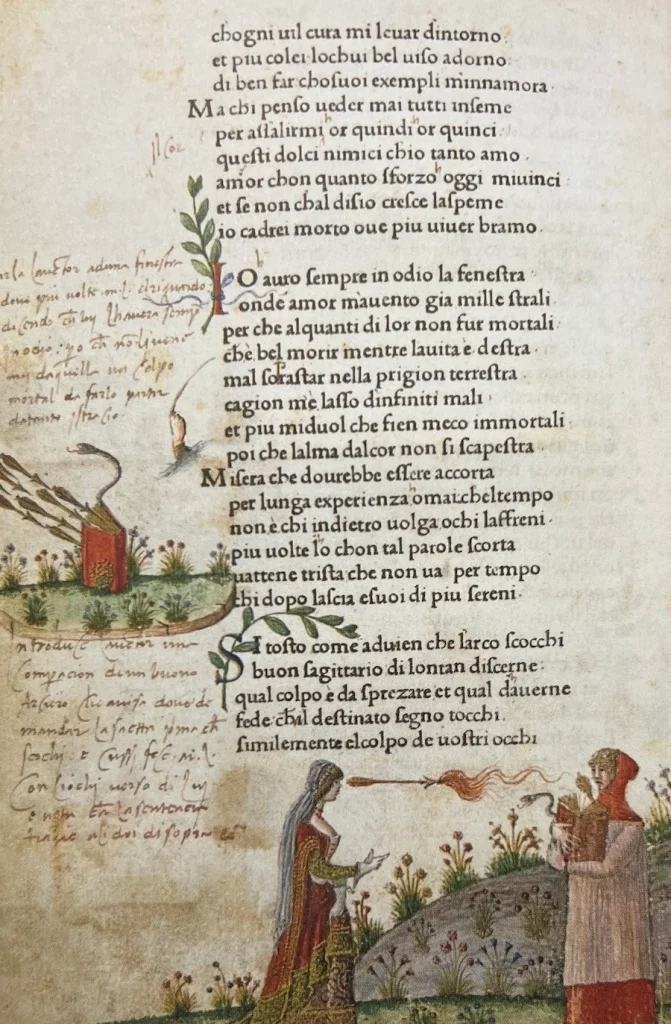 chogni uil cura mi leuar dintorno:
et piu colei lochui bel uiso adorno
di ben far chosuoi exempli minnamora·
Ma chi penso ueder mai tutti inseme
per assalirmi or quindi or quinci·
questi dolci nimici chio tanto amo·
amor chon quanto sforzo oggi miuinci:
et se non chal disio cresce laspeme
io cadrei morto oue piu uiuer bramo·
il cor
IO auro sempre in odio la fenestra·
onde amor mauento gia mille strali·
per che alquanti di lor non fur mortali·
chè bel morir mentre lauita è destra·
mal sorastar nella prigion terrestra
cagion mè lasso dinfiniti mali·
et piu miduol che fien meco immortali·
poi che lalma dalcor non si scapestra·
Misera che dourebbe essere accorta
per lunga experienza omai cheltempo
non è chi indietro uolga ochi laffreni·
piu uolte lo chon tal parole scorta
uattene trista che non ua per tempo
chi dopo lascia esuoi di piu sereni·
lauctor aduna fenestra
piu uolte
dicendo
colpo
mortal da farlo partir
da tanto stracio·
SI tosto come aduien che larco scocchi
buon sagittario di lontan discerne·
qual colpo è da sprezare et qual dauerne
fede chal destinato segno tocchi·
similemente elcolpo de uostri occhi
Introduce lauctor una
Comparacion di un buono
Arciero che auisa doue de
mandar la saetta
con li ochi uerso di lui
e nota la sententia